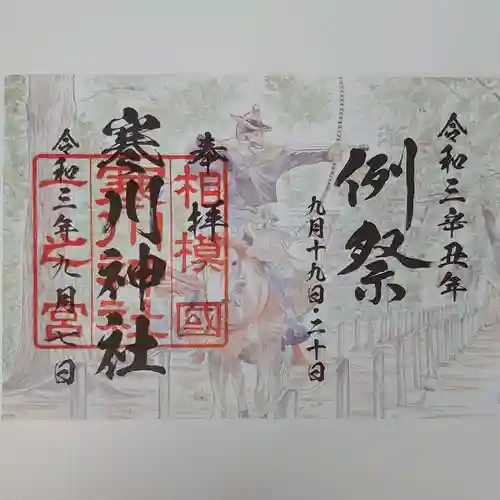 令和三辛丑年
例祭
九月十九日・二十日
奉拝
相模國
寒川神社
一之宮
令和三年九月七日